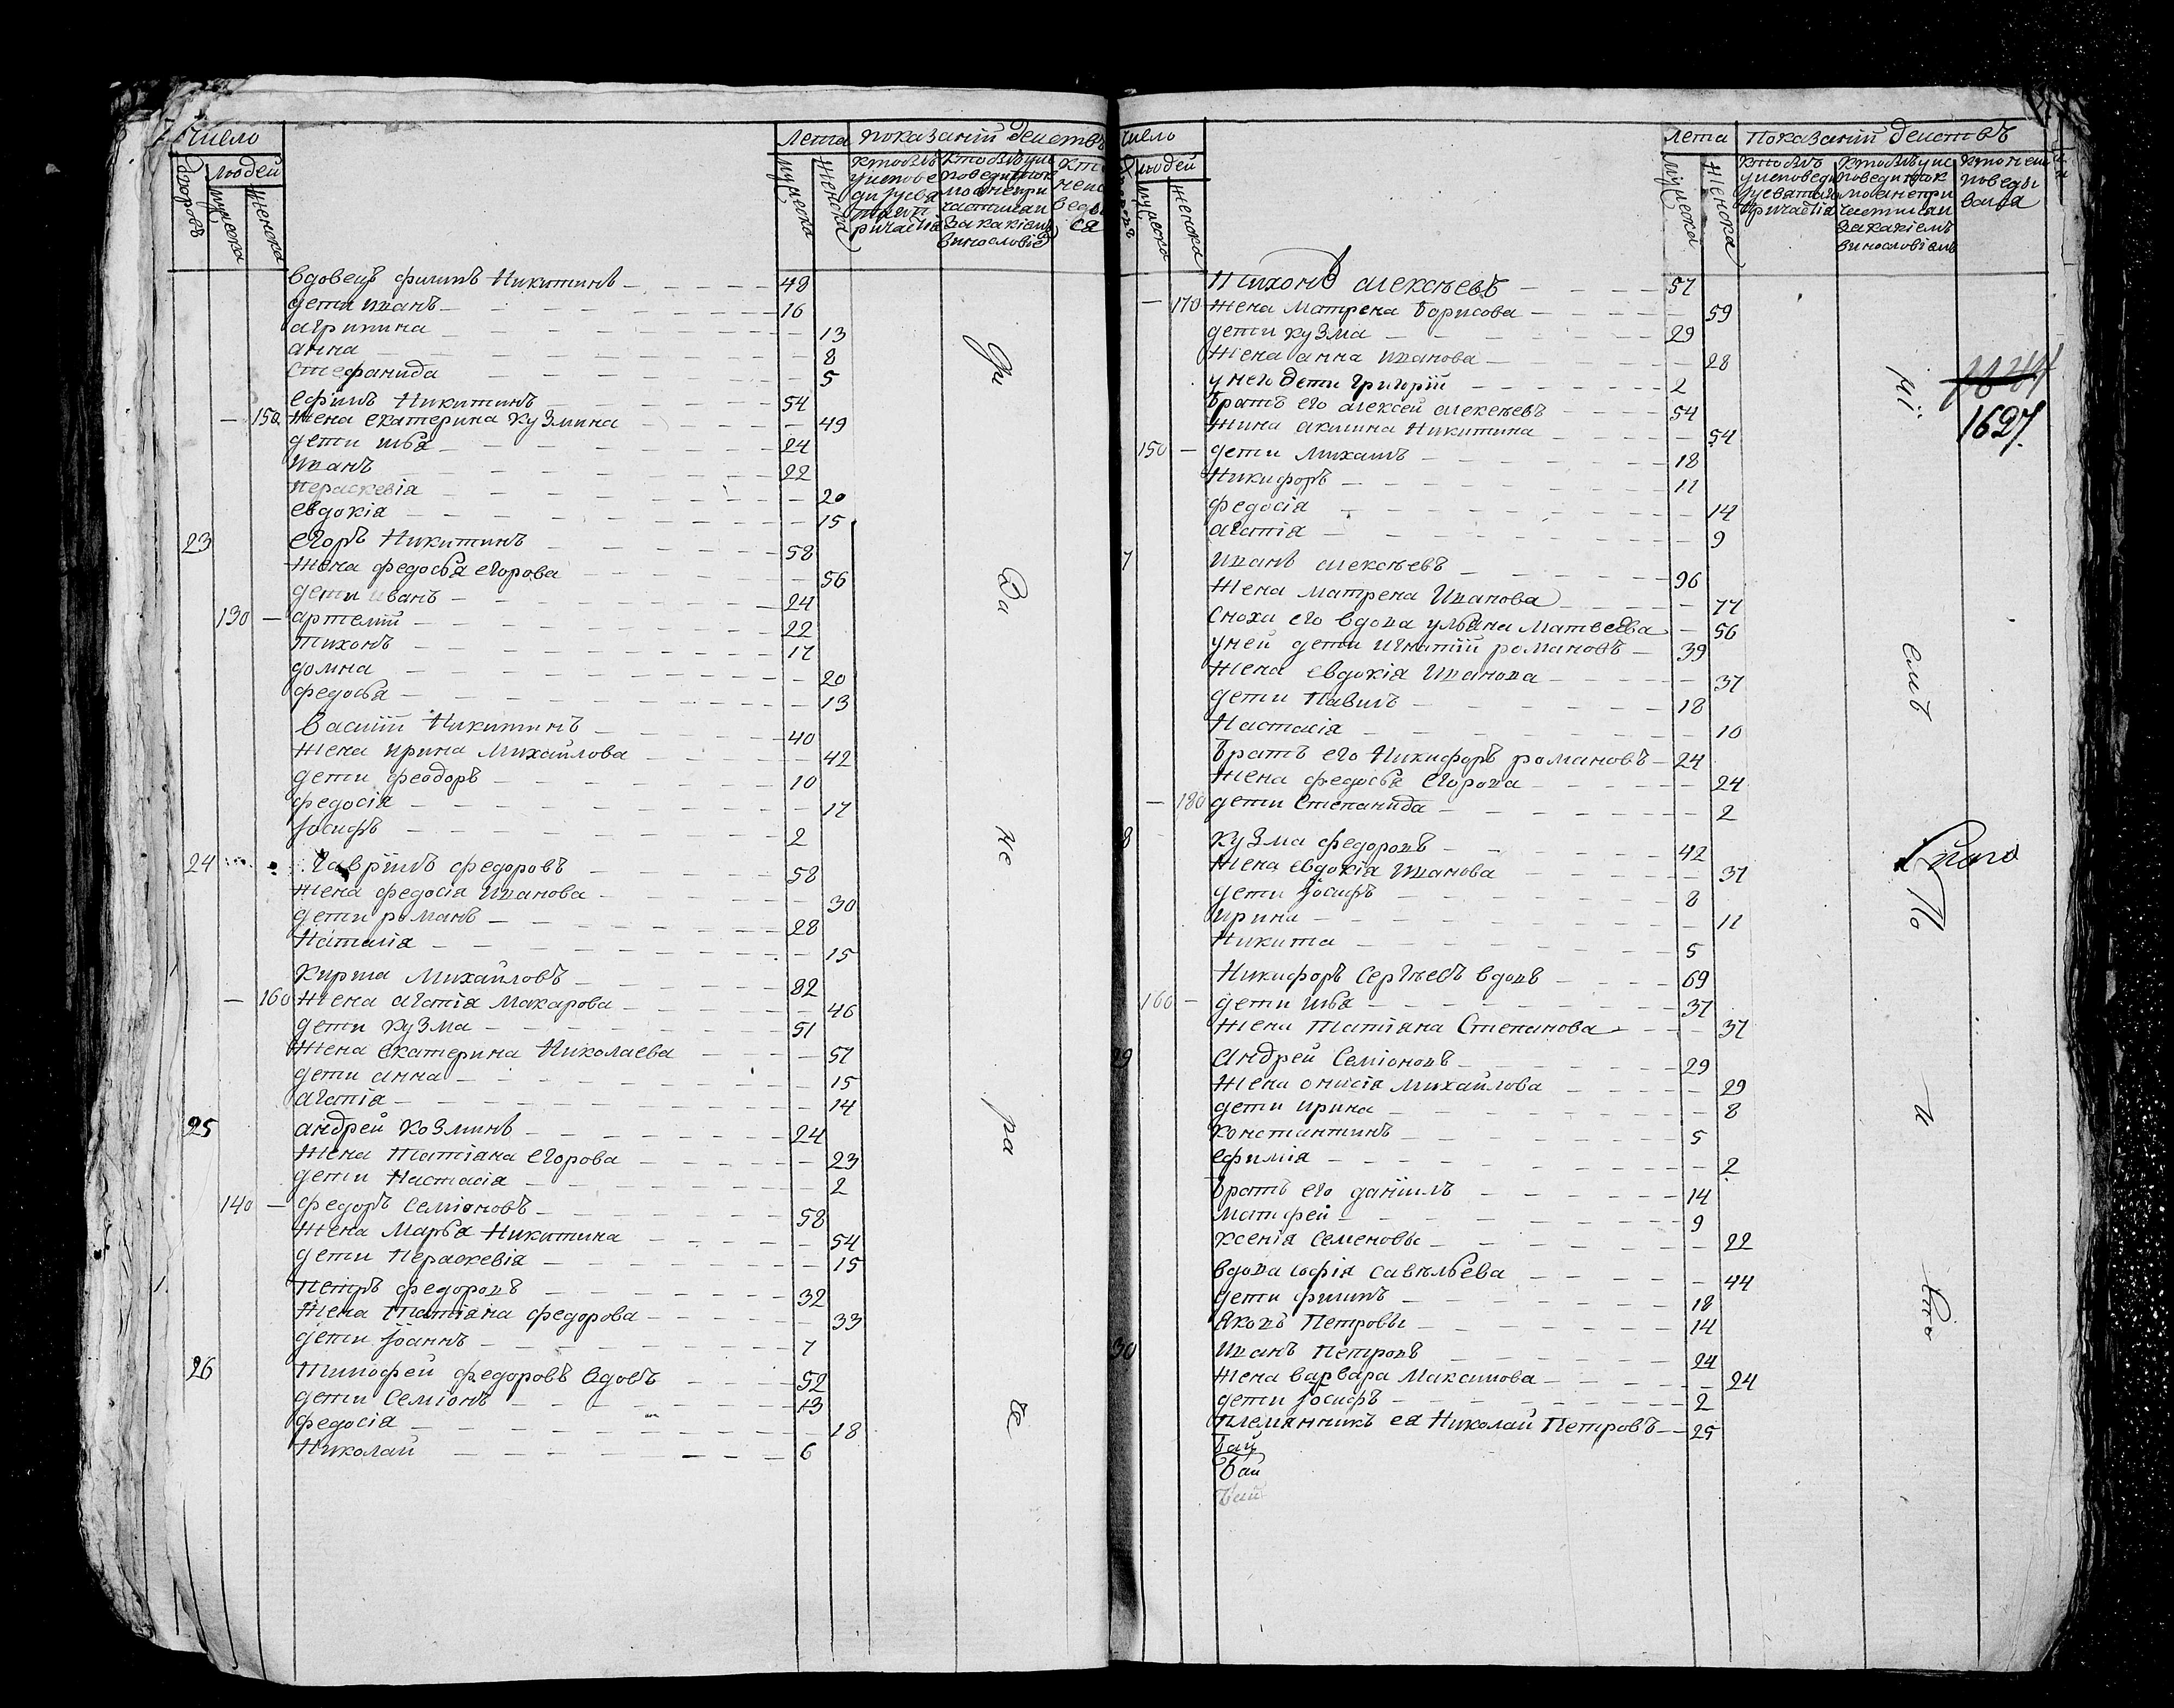 Число
Лета показаний деиствъ
людей
дворовъ
мужеска
женска
мужеска
женска
вдовецъ филипъ Никитинъ 48
дети иванъ 16
агрипина 13
анна 8
стефанида 5
ефимъ Никитинъ 54
150 жена екатерина кузмина 49
дети илья 24
иванъ 22
пераскевія 20
евдокія 15
23 егоръ Никитинъ 58
жена федосья егорова 56
дети иванъ 24
130 артемий 22
тихонъ 17
домна 20
федосья 13
василій Никитинъ 40
жена ирина Михайлова 42
дети феодоръ 10
федосія 17
Іосифъ 2
24 Гаврiилъ федоровъ 58
жена федосія Иванова 30
дети романъ 28
Наталія 15
кирила Михайловъ 82
160 жена агапія Макарова 46
дети кузма 51
жена екатерина Николаева 51
дети анна 15
агапія 14
25 андрей козминъ 24
жена татіана егорова 23
дети Настасія 2
140 федоръ Семіоновъ 58
жена Марья Никитина 54
дети пераскевія 15
петръ федоровъ 32
жена татіана федорова 33
дети Іоаннъ 7
26 тимофей федоровъ вдовъ 52
дети Семіонъ 13
федосія 18
Николай 6
Число
Лета Показаний деиствъ
людей
мужеска
женска
мужеска
женска
Тихонъ алексѣевъ 57
170 жена Матрена борисова 59
дети кузма 29
жена анна иванова 28
у него дети григорій 2
братъ его алексей алексѣевъ 54
жина акилина Никитина 54
150 дети Михаилъ 18
Никифоръ 11
федосія 14
агапія 9
7 Иванъ алексѣевъ 96
жена матрена Иванова 77
сноха его вдова ульяна Матвеева 56
у ней дети игнатій романовъ 39
жена евдокія Иванова 37
дети Павилъ 18
Настасія 10
братъ его Никифоръ романовъ 24
жена федосья егорова 24
180 дети Степанида 2
8 кузма федоровъ 42
жена евдокія иванова 37
дети Іосифъ 8
ирина 11
Никита 5
Никифоръ Сергѣевъ вдовъ 69
160 дети илья 37
жена татіана Степанова 37
29 андрей Семіоновъ 29
жена онисія михайлова 29
дети ирина 8
константинъ 5
ефимія 2
братъ его даніилъ 14
матифей 9
ксенія семеновы 22
вдова софія савѣльева 44
дети филипъ 18
Яковъ Петровы 14
30 иванъ Петровъ 24
жена варвара Максимова 24
дети Іосифъ 2
племянникъ ея Николай Петровъ 25
1627.